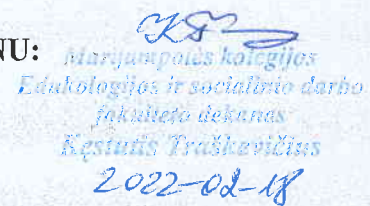 NU:
Marijampolės kolegijos
Edukologijos ir socialinio darbo
fakulteto dekanas
Kęstutis Traškevičius
2022-02-18